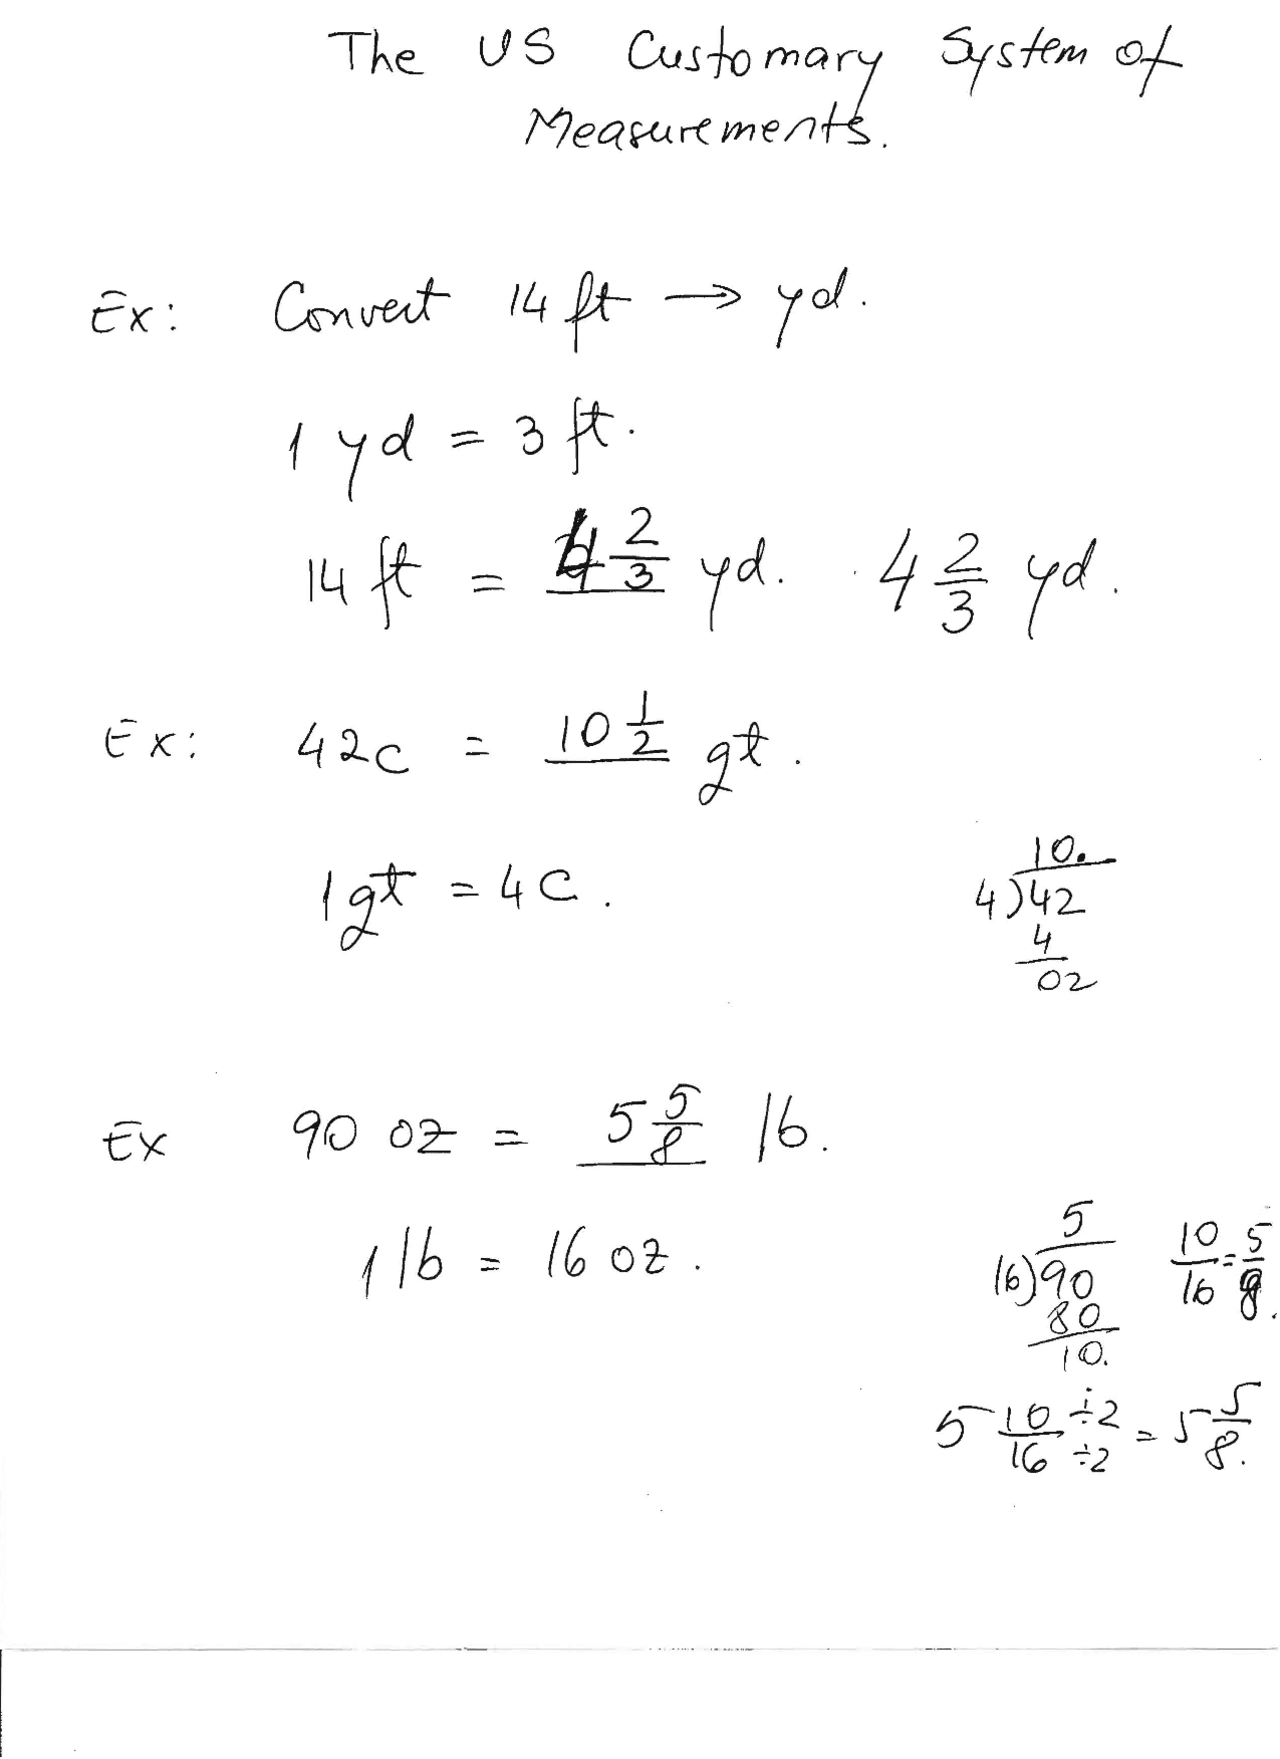 The US Customary System of
Measurements.
Ex: Convert 14 ft → yd.
1 yd = 3 ft.
14 ft = 4 2/3 yd. 4 2/3 yd.
Ex: 42c = 10 1/2 qt.
1 qt = 4 c.
10.
4)42
4
02
Ex 90 oz = 5 5/8 lb.
1 lb = 16 oz.
5
16)90
80
10.
10/16 = 5/8.
5 10/16 ÷2/÷2 = 5 5/8.